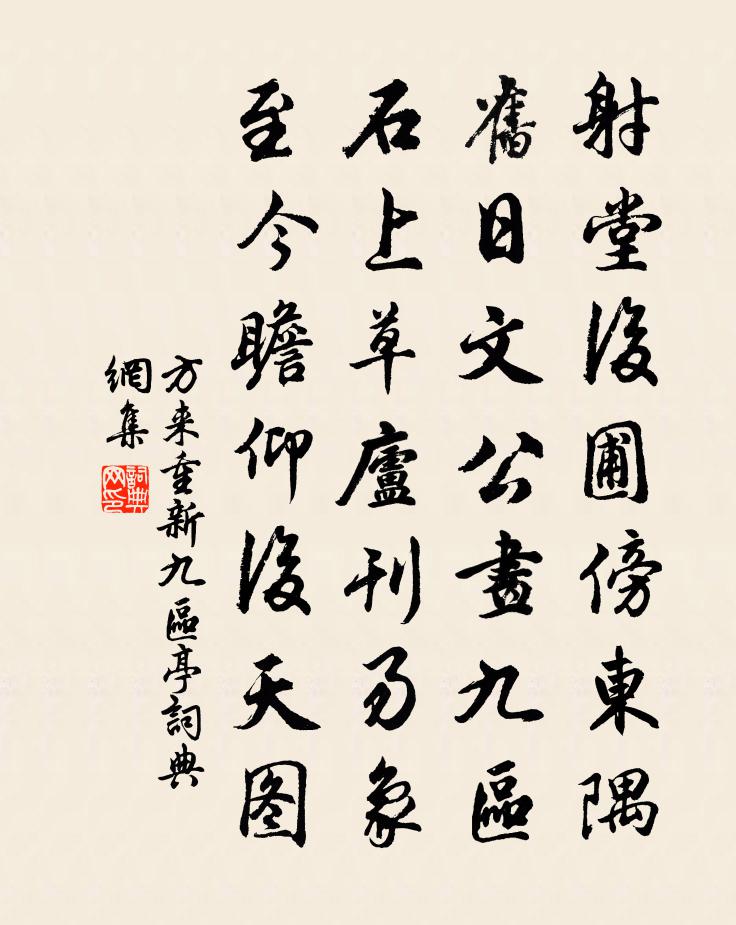 射堂後圃傍東隅
舊日文公畫九區
石上草廬刊易象
至今瞻仰後天图
方来重新九區亭詞典
網集
詞典
网印